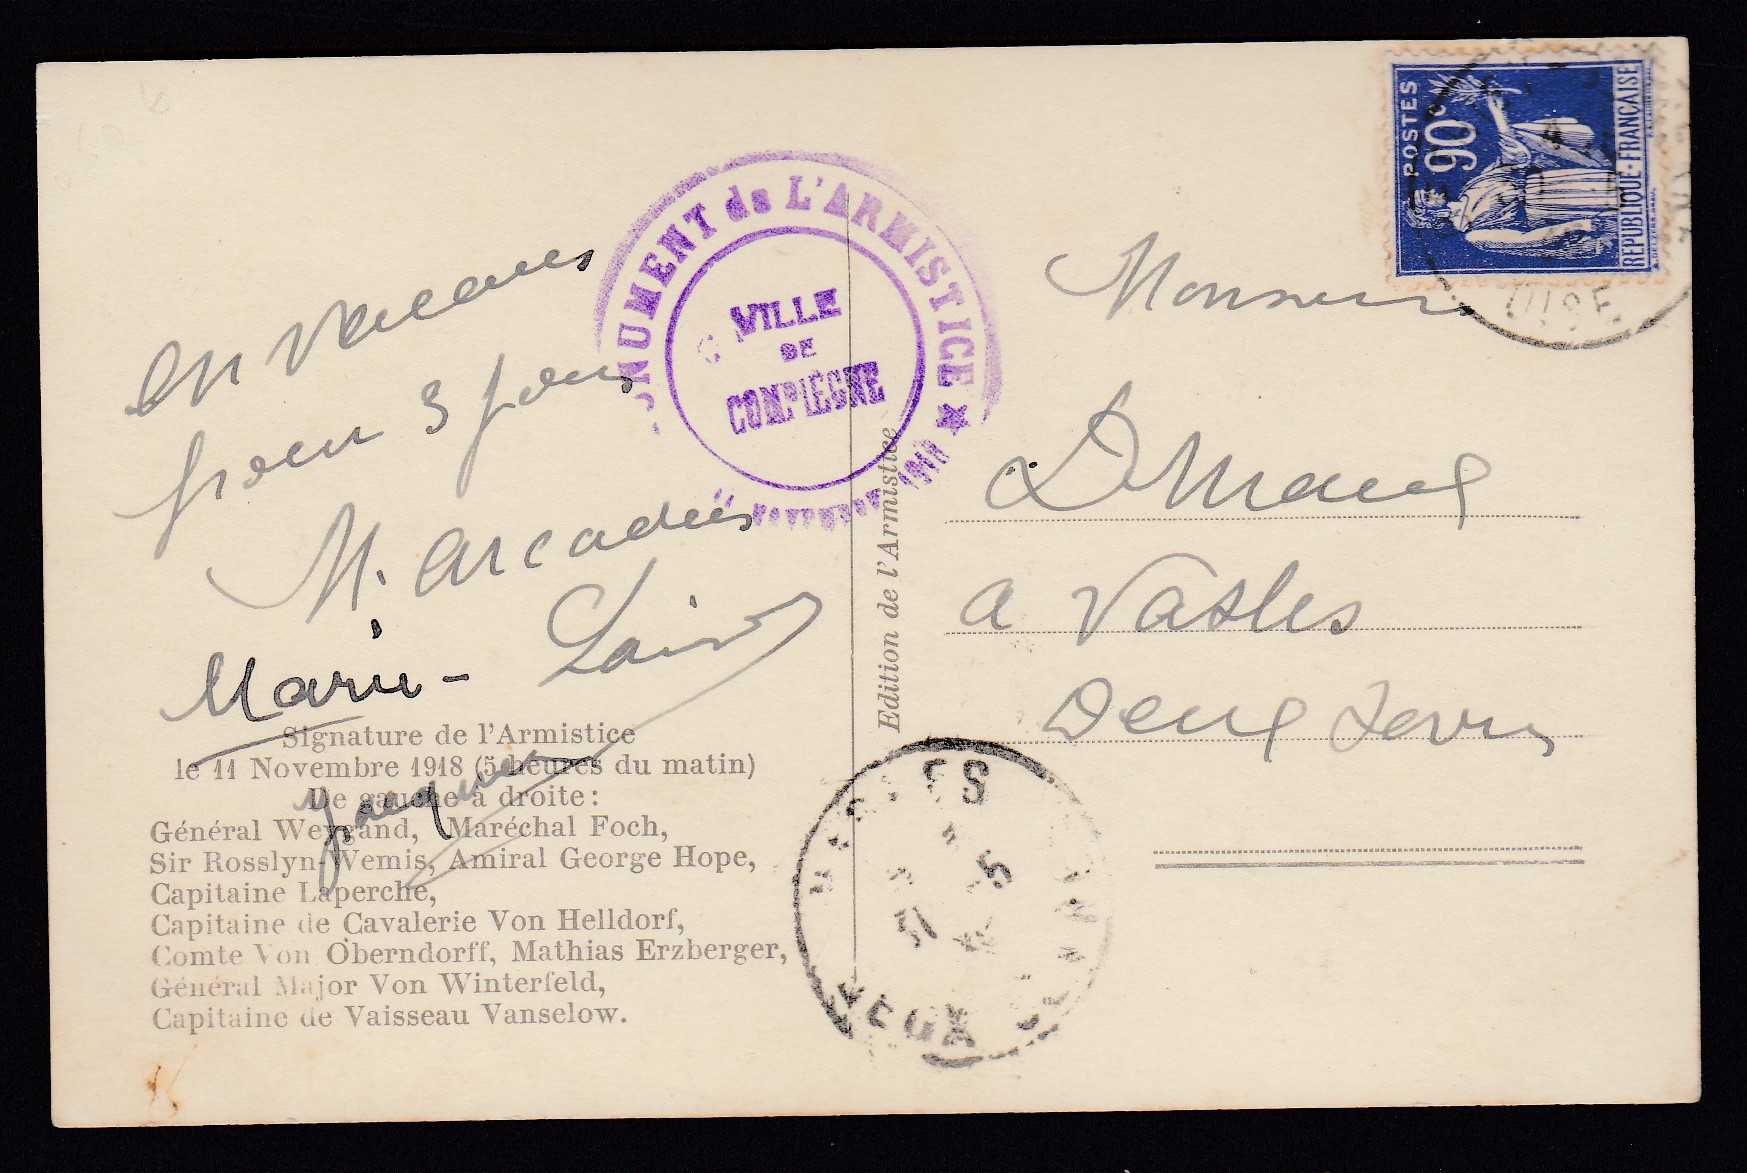 en vacances
pour 3 jours
M. Arcadius
Marie-
Jacques
MONUMENT de L'ARMISTICE ★
VILLE
DE
COMPIÈGNE
11 NOVEMBRE 1918
Signature de l'Armistice
le 11 Novembre 1918 (5 heures du matin)
De gauche à droite :
Général Weygand, Maréchal Foch,
Sir Rosslyn-Wemis, Amiral George Hope,
Capitaine Laperche,
Capitaine de Cavalerie Von Helldorf,
Comte Von Oberndorff, Mathias Erzberger,
Général Major Von Winterfeld,
Capitaine de Vaisseau Vanselow.
Edition de l'Armistice
POSTES
90c
REPUBLIQUE-FRANÇAISE
OISE
Monsieur
a Vasles
Deux Sevres
VASLES
DEUX SEVRES